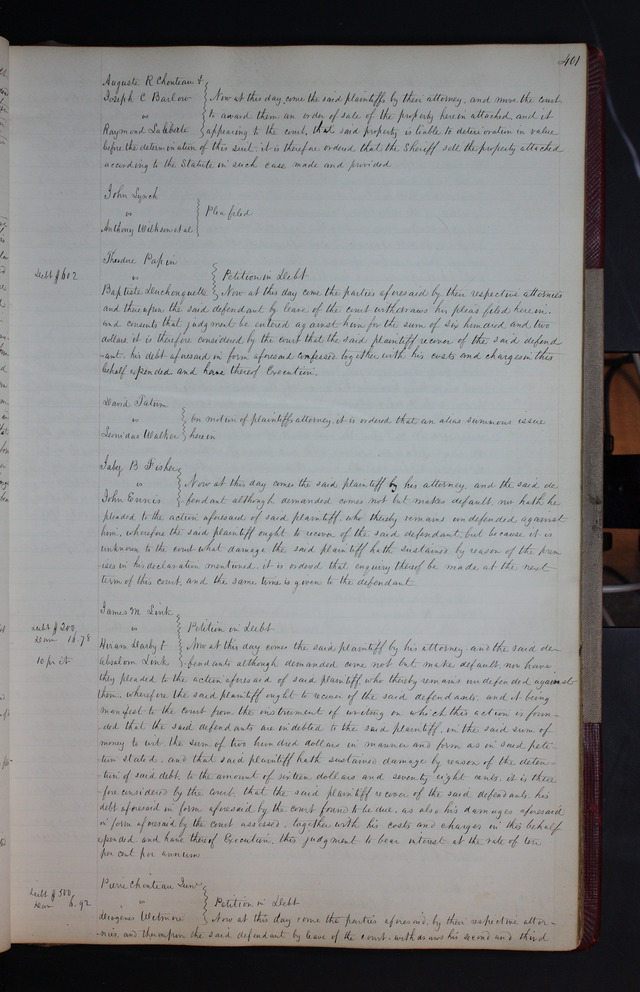 401
Auguste R Chouteau &
Joseph C Barlow
vs
Raymond Labbate
Now at this day come the said plaintiffs by their attorney, and move the court
to award them an order of sale of the property herein attached, and it
appearing to the court, that said property is liable to deterioration in value
before the determination of this suit: it is therefore ordered that the Sheriff sell the property attached
according to the Statute in such case made and provided
John Lynch
vs
Anthony Wilhsen et al
Plea filed
Debt $602
Theodore Papin
vs
Baptiste Duchouquette
Petition in Debt
Now at this day come the parties aforesaid by their respective attornies
and thereupon the said defendant by leave of the court withdraws his pleas filed herein.
and consents that judgment be entered against him for the sum of Six hundred and two
dollars it is therefore considered by the court that the said plaintiff recover of the said defend
-ant. his debt aforesaid in form aforesaid confessed together with his costs and charges in this
behalf expended and have thereof Execution.
David Tatum
vs
Leonidas Walker
on motion of plaintiffs attorney it is ordered that an alias summons issue
herein
Jabez B Fisher
vs
John Ennis
Now at this day comes the said plaintiff by his attorney, and the said de
-fendant although demanded comes not but makes default, nor hath he
pleaded to the action aforesaid of said plaintiff, who thereby remains undefended against
him, wherefore the said plaintiff ought to recover of the said defendant, but because it is
unknown to the court what damage the said plaintiff hath sustained by reason of the prem
ises in his declaration mentioned, it is ordered that enquiry thereof be made at the next
term of this court, and the same time is given to the defendant
Debt $200
Dam 16.78
10 pr ct
James M Link
vs
Hiram Darby &
Absalom Link
Petition in Debt
Now at this day comes the said plaintiff by his attorney and the said de-
-fendants although demanded come not but make default, nor have
they pleaded to the action aforesaid of said plaintiff who thereby remains undefended against
them, wherefore the said plaintiff ought to recover of the said defendants, and it being
manifest to the court from the instrument of writing on which this action is foun-
-ded that the said defendants are indebted to the said plaintiff, in the said sum of
money to wit the sum of two hundred dollars in manner and form as in said peti-
tion stated, and that said plaintiff hath sustained damage by reason of the deten-
-tion of said debt, to the amount of sixteen dollars and seventy eight cents. it is there
fore considered by the court that the said plaintiff recover of the said defendants, his
debt aforesaid in form aforesaid by the court found to be due, as also his damages aforesaid
in form aforesaid by the court assessed, together with his costs and charges in this behalf
expended and have thereof Execution, this judgment to bear interest at the rate of ten
per cent per annum
Debt $500
Dam 6.92
Pierre Chouteau Junr
vs
Diogenes Wetmore
Petition in Debt
Now at this day come the parties aforesaid, by their respective attor-
nies, and thereupon the said defendant by leave of the court, withdraws his second and third